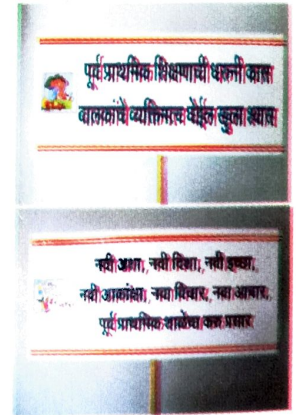 पूर्व प्राथमिक शिक्षणाची धरूनी कास
बालकांचे व्यक्तिमत्व घेईल खुला श्वास
नवी आशा, नवी दिशा, नवी इच्छा,
नवी आकांक्षा, नवा विचार, नवा आचार,
पूर्व प्राथमिक शाळेचा करु प्रचार